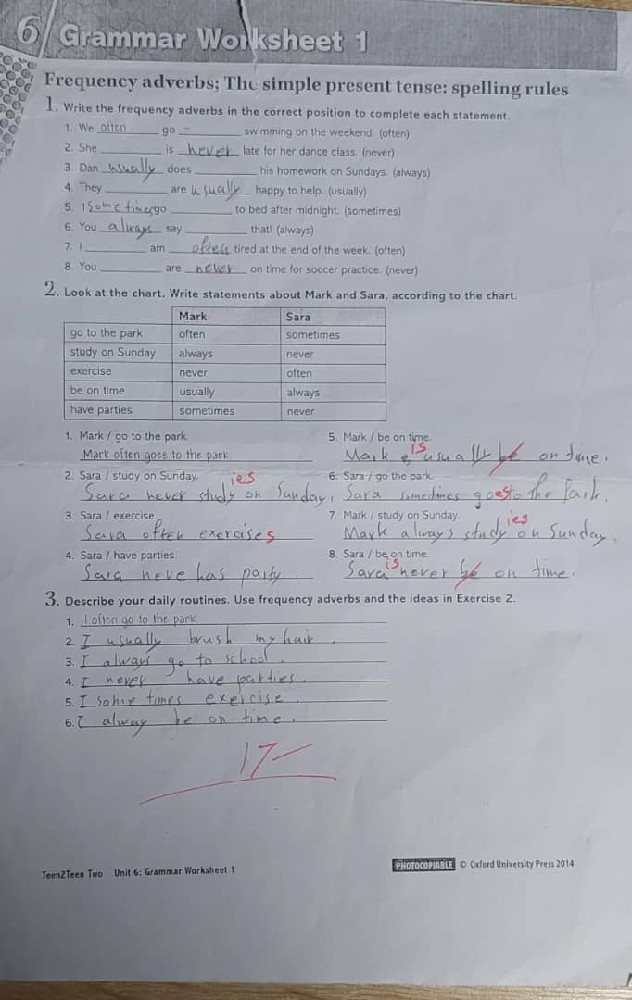 6 Grammar Worksheet 1
Frequency adverbs; The simple present tense: spelling rules
1. Write the frequency adverbs in the correct position to complete each statement.
1. We often go – swimming on the weekend. (often)
2. She is never late for her dance class. (never)
3. Dan usually does his homework on Sundays. (always)
4. They are usually happy to help. (usually)
5. I Sometimes go to bed after midnight. (sometimes)
6. You always say that! (always)
7. I am often tired at the end of the week. (often)
8. You are never on time for soccer practice. (never)
2. Look at the chart. Write statements about Mark and Sara, according to the chart.
Mark Sara
go to the park often sometimes
study on Sunday always never
exercise never often
be on time usually always
have parties sometimes never
1. Mark / go to the park. 5. Mark / be on time.
is
Mark often goes to the park. Mark usually be on time.
2. Sara / study on Sunday. 6. Sara / go the park.
ies
Sara never study on Sunday. Sara sometimes goes to the Park.
3. Sara / exercise 7. Mark / study on Sunday.
ies
Sara often exercises Mark always study on Sunday.
4. Sara / have parties. 8. Sara / be on time.
is
Sara neve has party Sara never be on time.
3. Describe your daily routines. Use frequency adverbs and the ideas in Exercise 2.
1. I often go to the park
2. I usually brush my hair.
3. I always go to school.
4. I never have parties.
5. I some times exercise.
6. I alway be on time.
17
Teen2Teen Two Unit 6: Grammar Worksheet 1 PHOTOCOPIABLE © Oxford University Press 2014